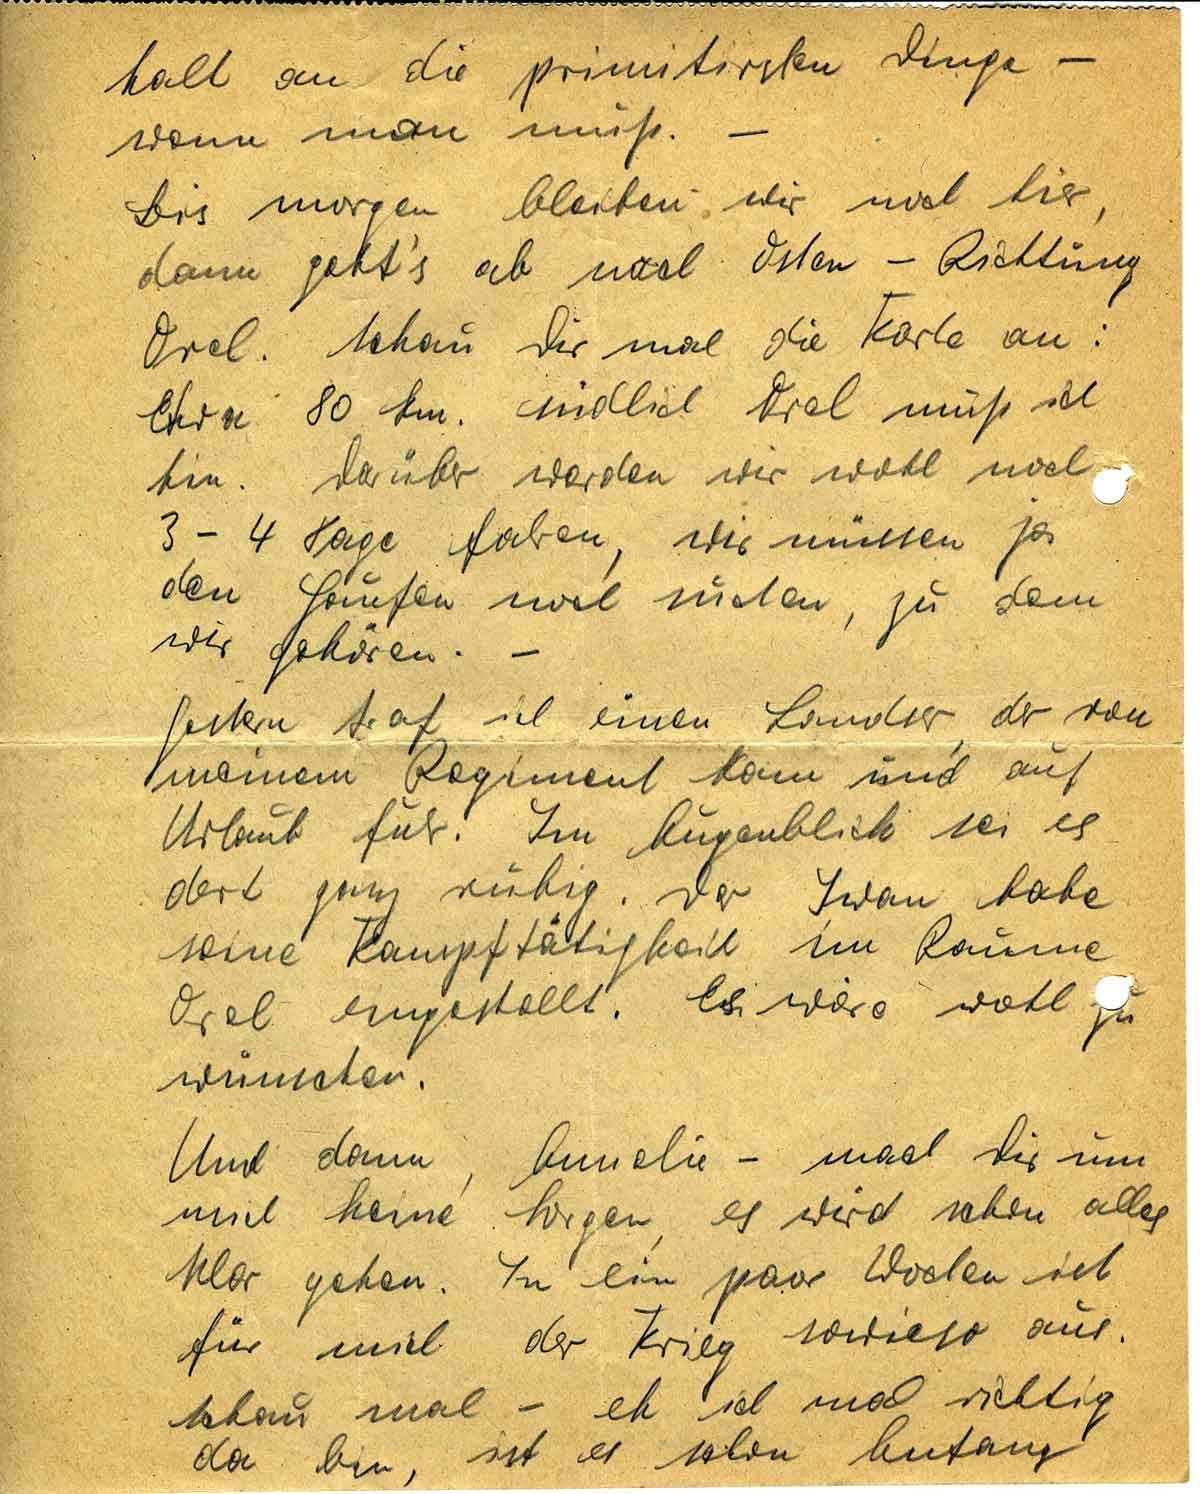 halt an die primitivsten Dinge –
wenn man muß. –
Bis morgen bleiben wir noch hier,
dann geht's ab nach Osten – Richtung
Orel. Schau Dir mal die Karte an:
Etwa 80 km. südlich Orel muß ich
hin. Darüber werden wir wohl noch
3 – 4 Tage fahren, wir müssen ja
den Haufen noch suchen, zu dem
wir gehören. –
Gestern traf ich einen Landser, der von
meinem Regiment kam und auf
Urlaub fuhr. Im Augenblick sei es
dort ganz ruhig. Der Iwan habe
seine Kampftätigkeit im Raume
Orel eingestellt. Es wäre wohl zu
wünschen.
Und dann, Annelie – mach Dir um
mich keine Sorgen, es wird schon alles
klar gehen. In ein paar Wochen ist
für mich der Krieg sowieso aus.
Schau mal – eh ich mal richtig
da bin, ist es schon Anfang